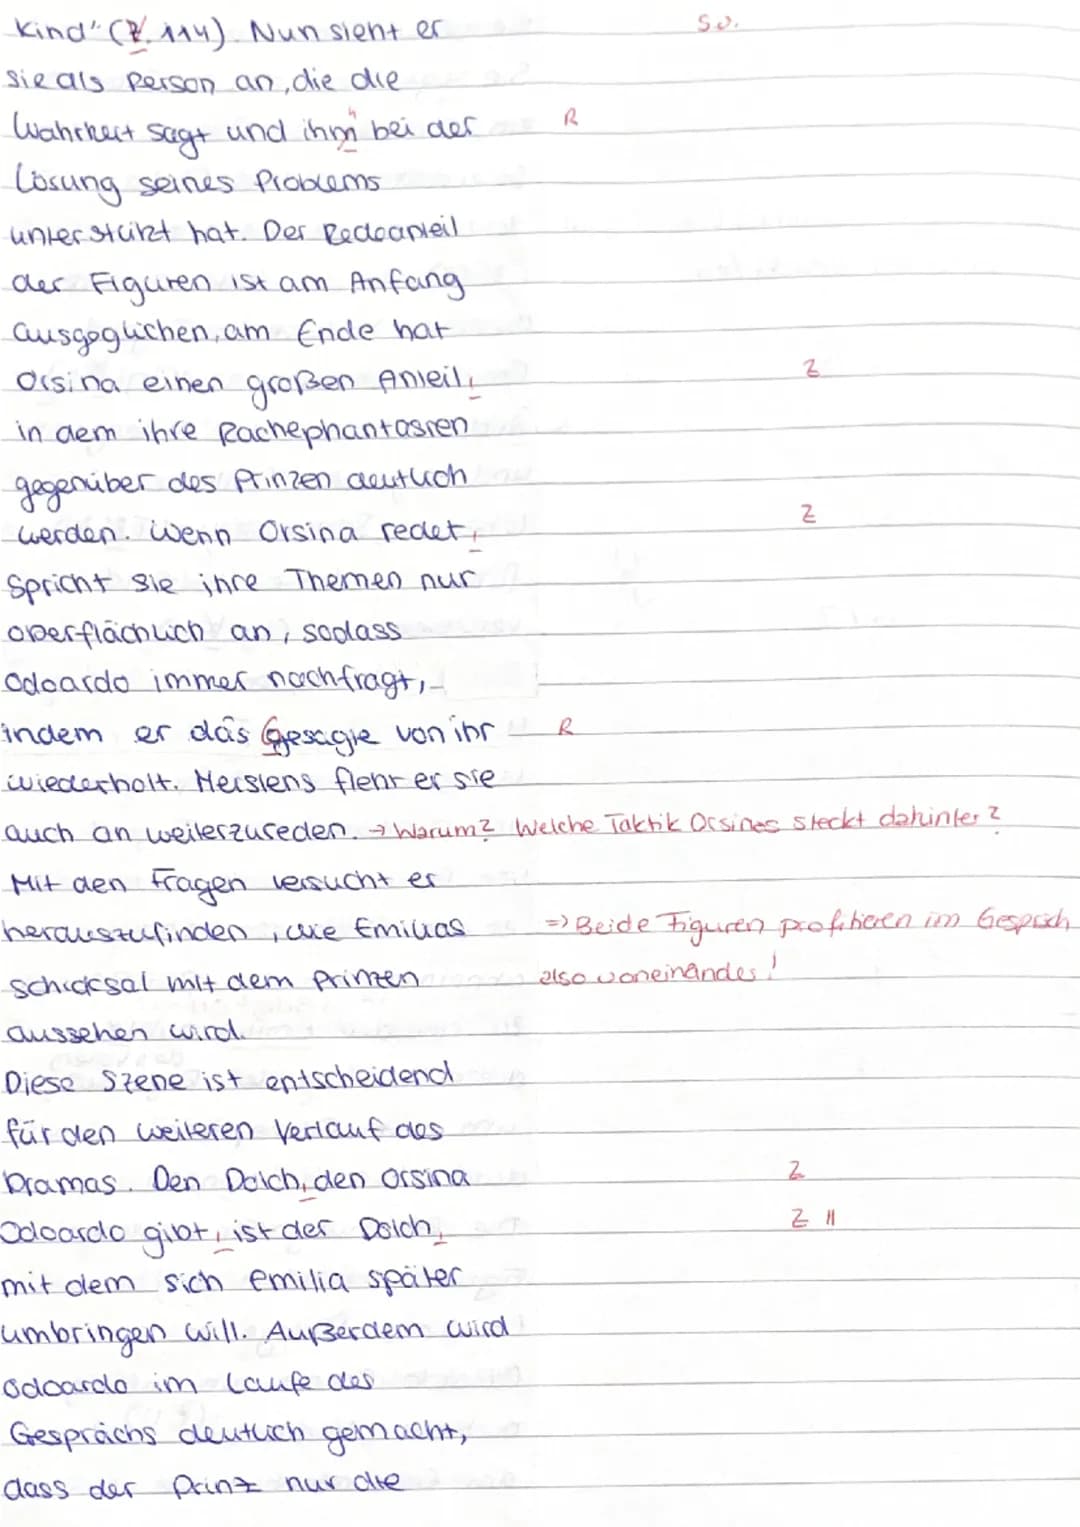 Kind" (Z. 114). Nun sieht er So.
sie als Person an, die die
Wahrheit sagt und ihm bei der R
Lösung seines Problems
unterstützt hat. Der Redeanteil
der Figuren ist am Anfang
ausgeglichen, am Ende hat
Orsina einen großen Anteil, Z
in dem ihre Rachephantasien
gegenüber des Prinzen deutlich
werden. Wenn Orsina redet, Z
spricht sie ihre Themen nur
oberflächlich an, sodass
Odoardo immer nachfragt,
indem er das Gesagte von ihr R
wiederholt. Meistens fleht er sie
auch an weiterzureden. → Warum? Welche Taktik Orsinas steckt dahinter?
Mit den Fragen versucht er
herauszufinden, wie Emilias => Beide Figuren profitieren im Gespräch
Schicksal mit dem Prinzen also voneinander!
aussehen wird.
Diese Szene ist entscheidend
für den weiteren Verlauf des
Dramas. Den Dolch, den Orsina Z
Odoardo gibt, ist der Dolch, Z II
mit dem sich Emilia später
umbringen will. Außerdem wird
Odoardo im Laufe des
Gesprächs deutlich gemacht,
dass der Prinz nur die